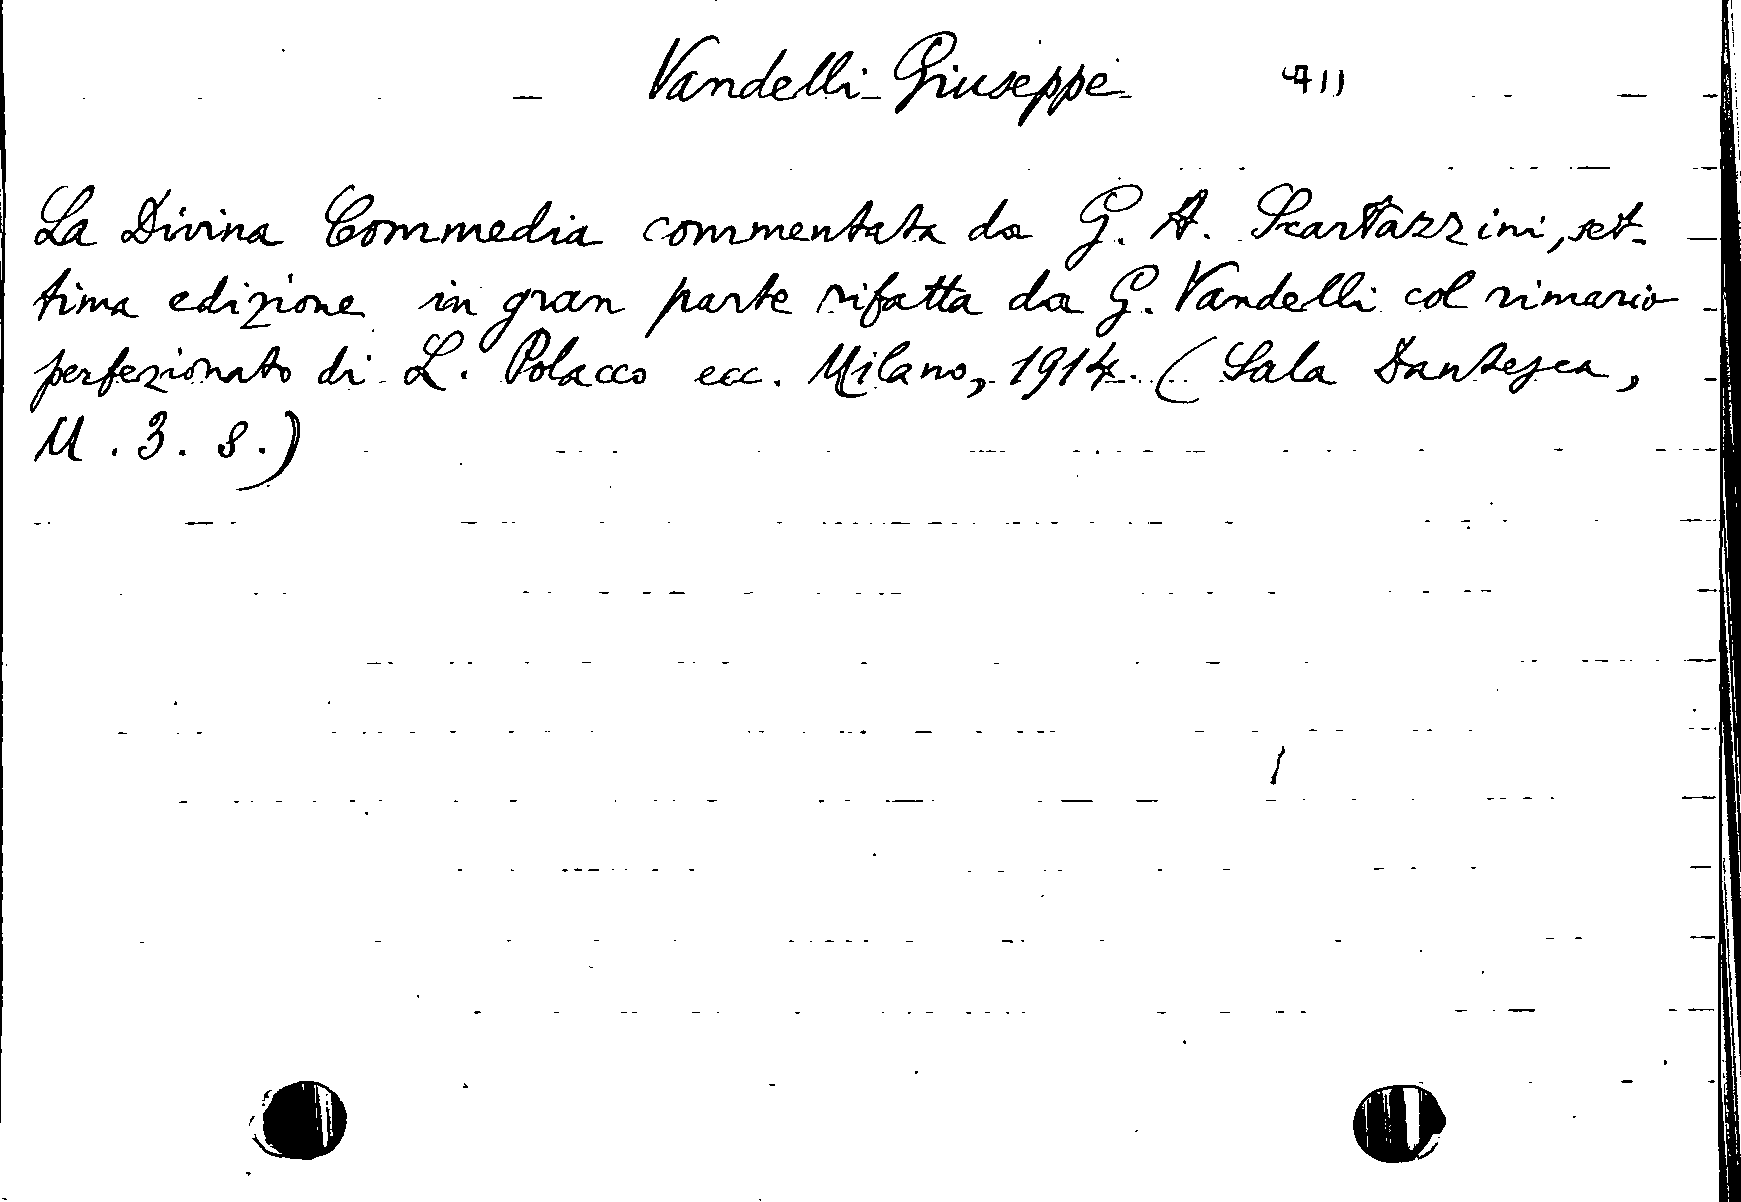 Vandelli Giuseppe 711
La Divina Commedia commentata da G. A. Scartazzini, set-
tima edizione in gran parte rifatta da G. Vandelli col rimario
perfezionato di L. Polacco ecc. Milano, 1914. (Sala Dantesca,
M. 3. 8.)